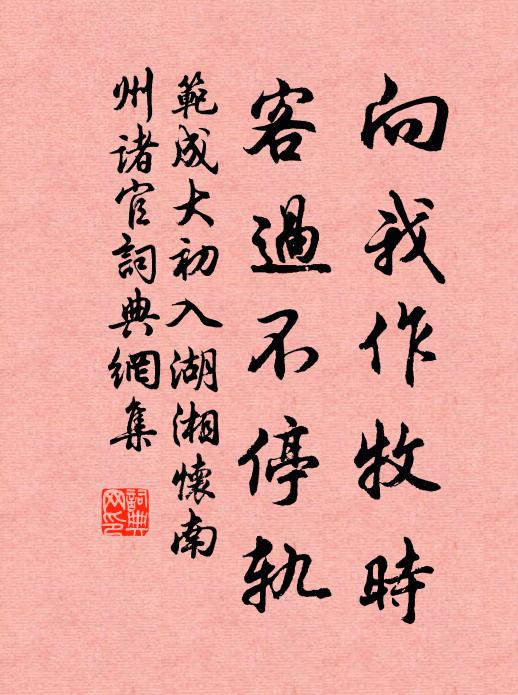 向我作牧時
客過不停軌
範成大初入湖湘懷南
州諸官詞典網集
詞典
网印